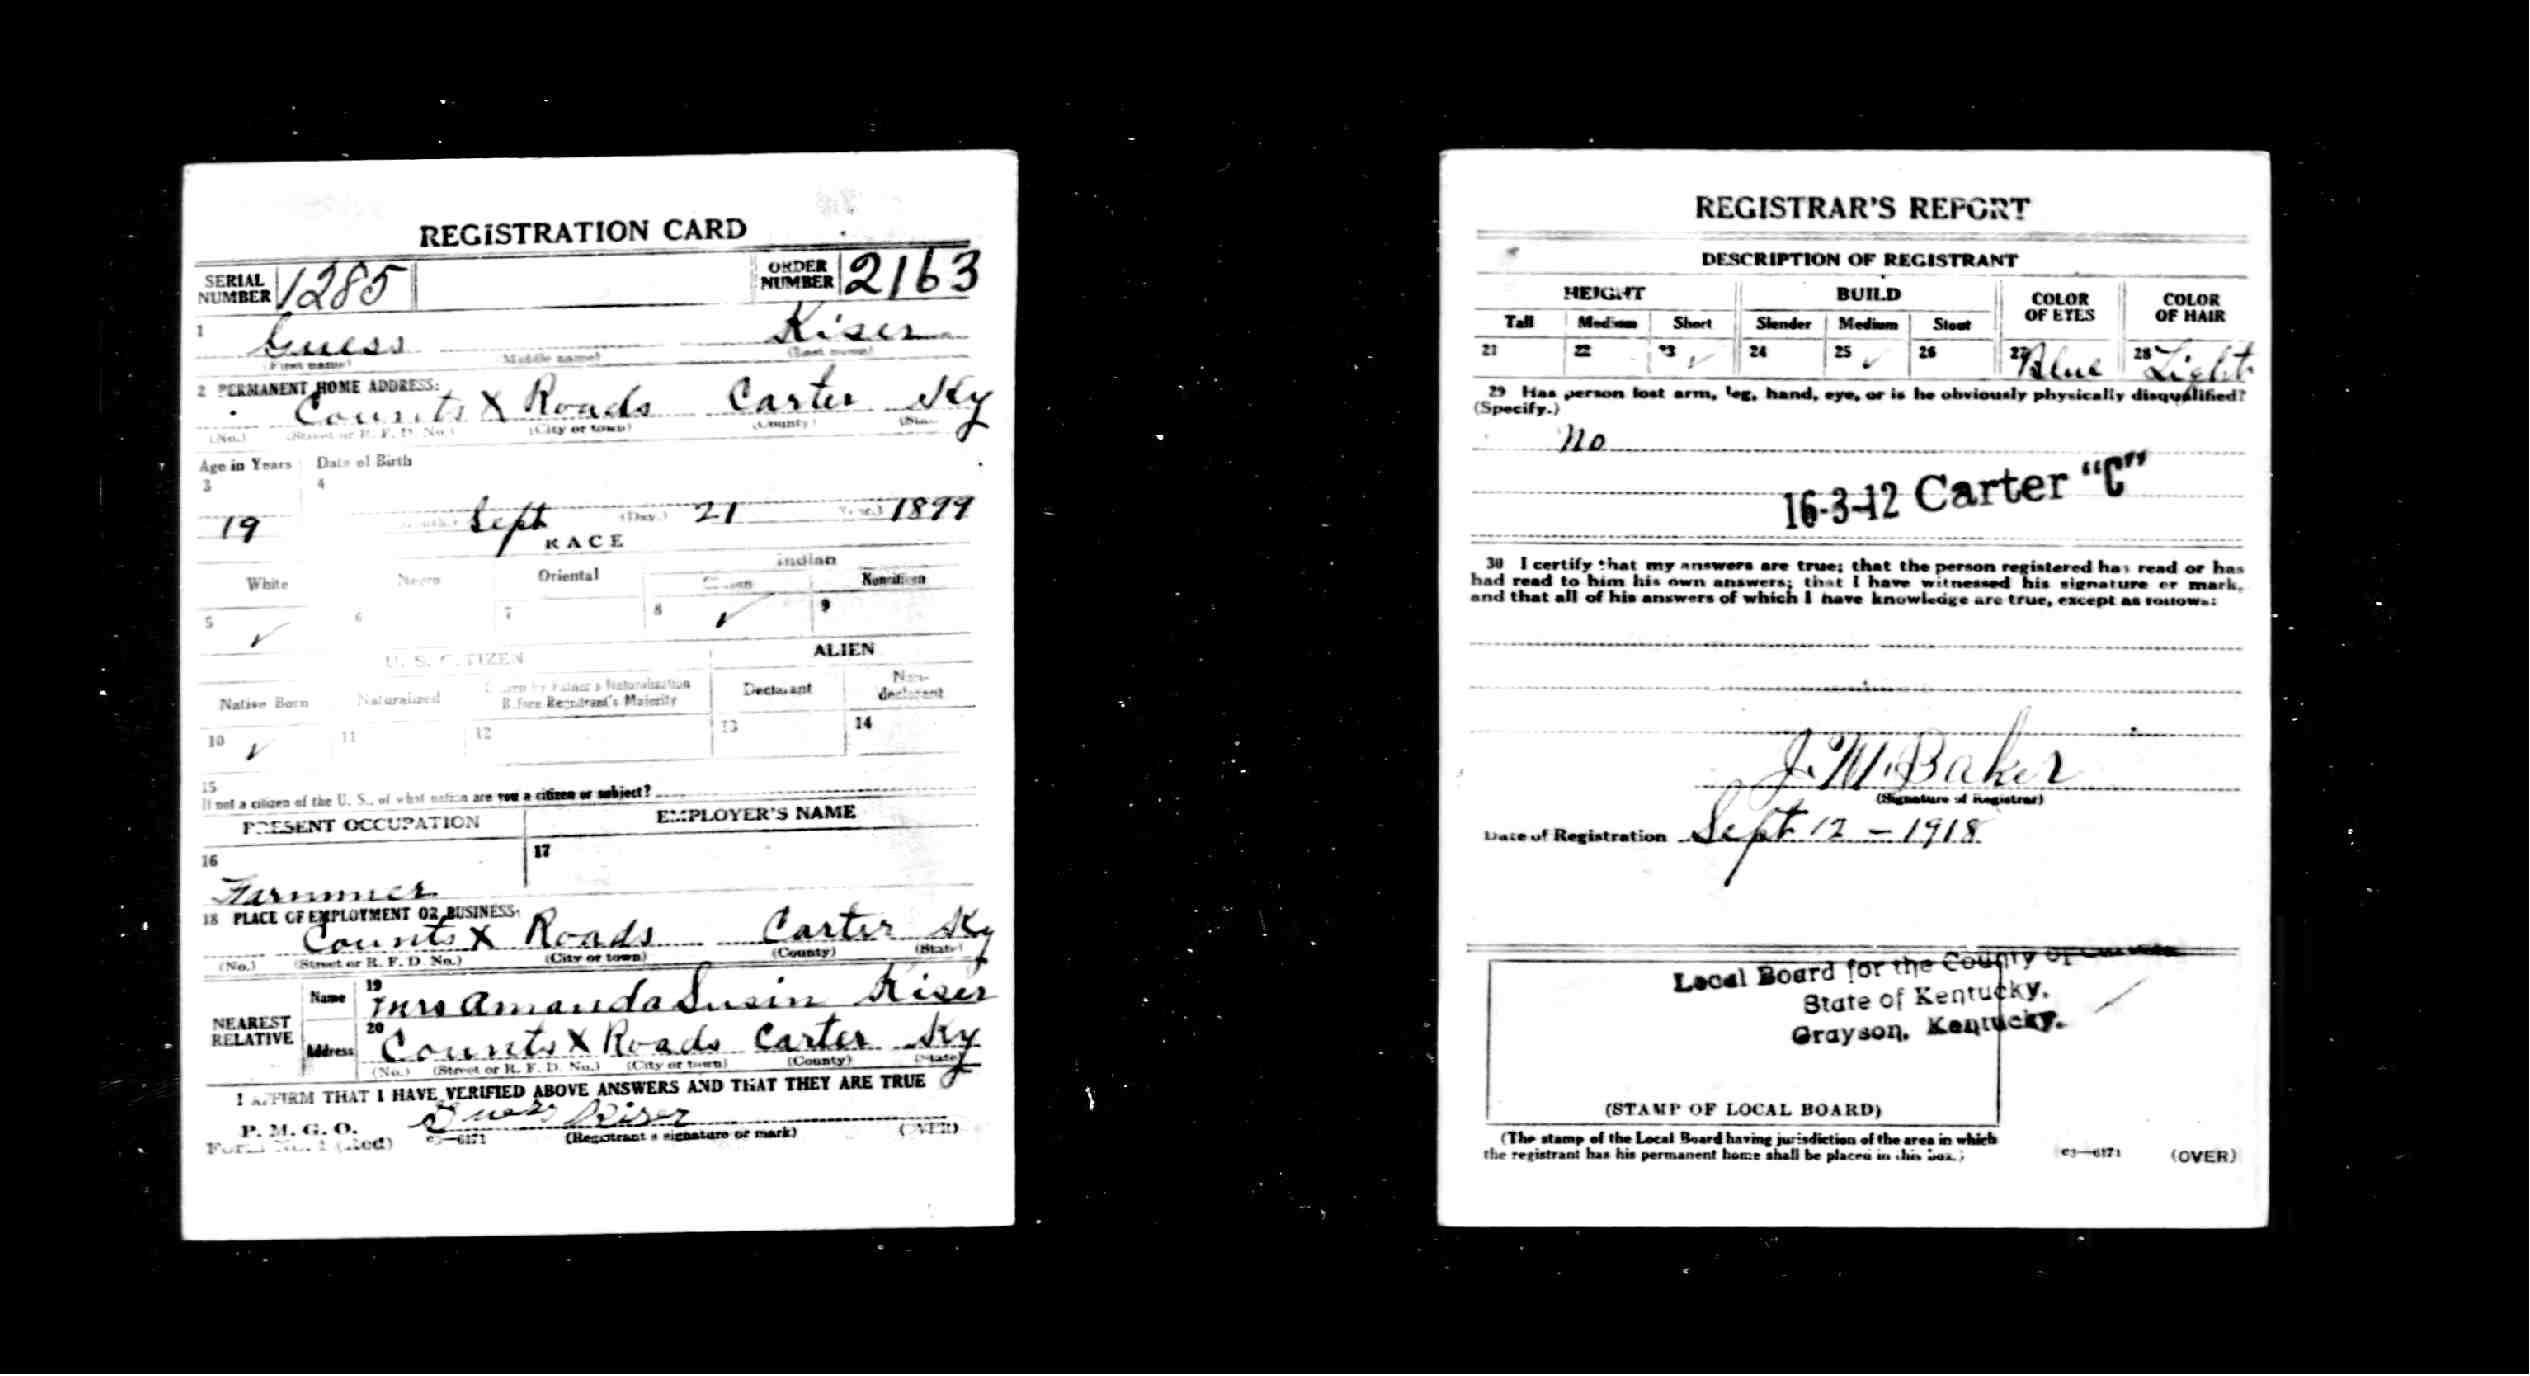 REGISTRATION CARD
SERIAL NUMBER 1285 ORDER NUMBER 2163
1 Guess Kiser
(First name) (Middle name) (Last name)
2 PERMANENT HOME ADDRESS:
Counts X Roads Carter Ky
(No.) (Street or R. F. D. No.) (City or town) (County)
Age in Years Date of Birth
3 4
19 Sept (Day.) 21 (Year.) 1899
RACE
Indian
White Negro Oriental
5 ✓ 6 7 8 ✓ 9
U. S. CITIZEN ALIEN
Native Born Naturalized Citizen by Father's Naturalization Before Registrant's Majority Declarant Non-declarant
10 ✓ 11 12 13 14
15
If not a citizen of the U. S., of what nation are you a citizen or subject?
PRESENT OCCUPATION EMPLOYER'S NAME
16 17
Farmmer
18 PLACE OF EMPLOYMENT OR BUSINESS:
Counts X Roads Carter Ky
(No.) (Street or R. F. D. No.) (City or town) (County) (State)
NEAREST RELATIVE Name 19 Mrs Amanda Susin Kiser
Address 20 Counts X Roads Carter Ky
(No.) (Street or R. F. D. No.) (City or town) (County) (State)
I AFFIRM THAT I HAVE VERIFIED ABOVE ANSWERS AND THAT THEY ARE TRUE
P. M. G. O. Guess Kiser
Form No. 1 (Red) 03—6171 (Registrant's signature or mark) (OVER)
REGISTRAR'S REPORT
DESCRIPTION OF REGISTRANT
HEIGHT BUILD COLOR OF EYES COLOR OF HAIR
Tall Medium Short Slender Medium Stout
21 22 23 ✓ 24 25 ✓ 26 27 Blue 28 Light
29 Has person lost arm, leg, hand, eye, or is he obviously physically disqualified?
(Specify.)
No
16-3-12 Carter "C"
30 I certify that my answers are true; that the person registered has read or has
had read to him his own answers; that I have witnessed his signature or mark,
and that all of his answers of which I have knowledge are true, except as follows:
J. M. Baker
(Signature of Registrar)
Date of Registration Sept 12 - 1918
Local Board for the County of
State of Kentucky,
Grayson, Kentucky.
(STAMP OF LOCAL BOARD)
(The stamp of the Local Board having jurisdiction of the area in which
the registrant has his permanent home shall be placed in this box.)
03—6171 (OVER)